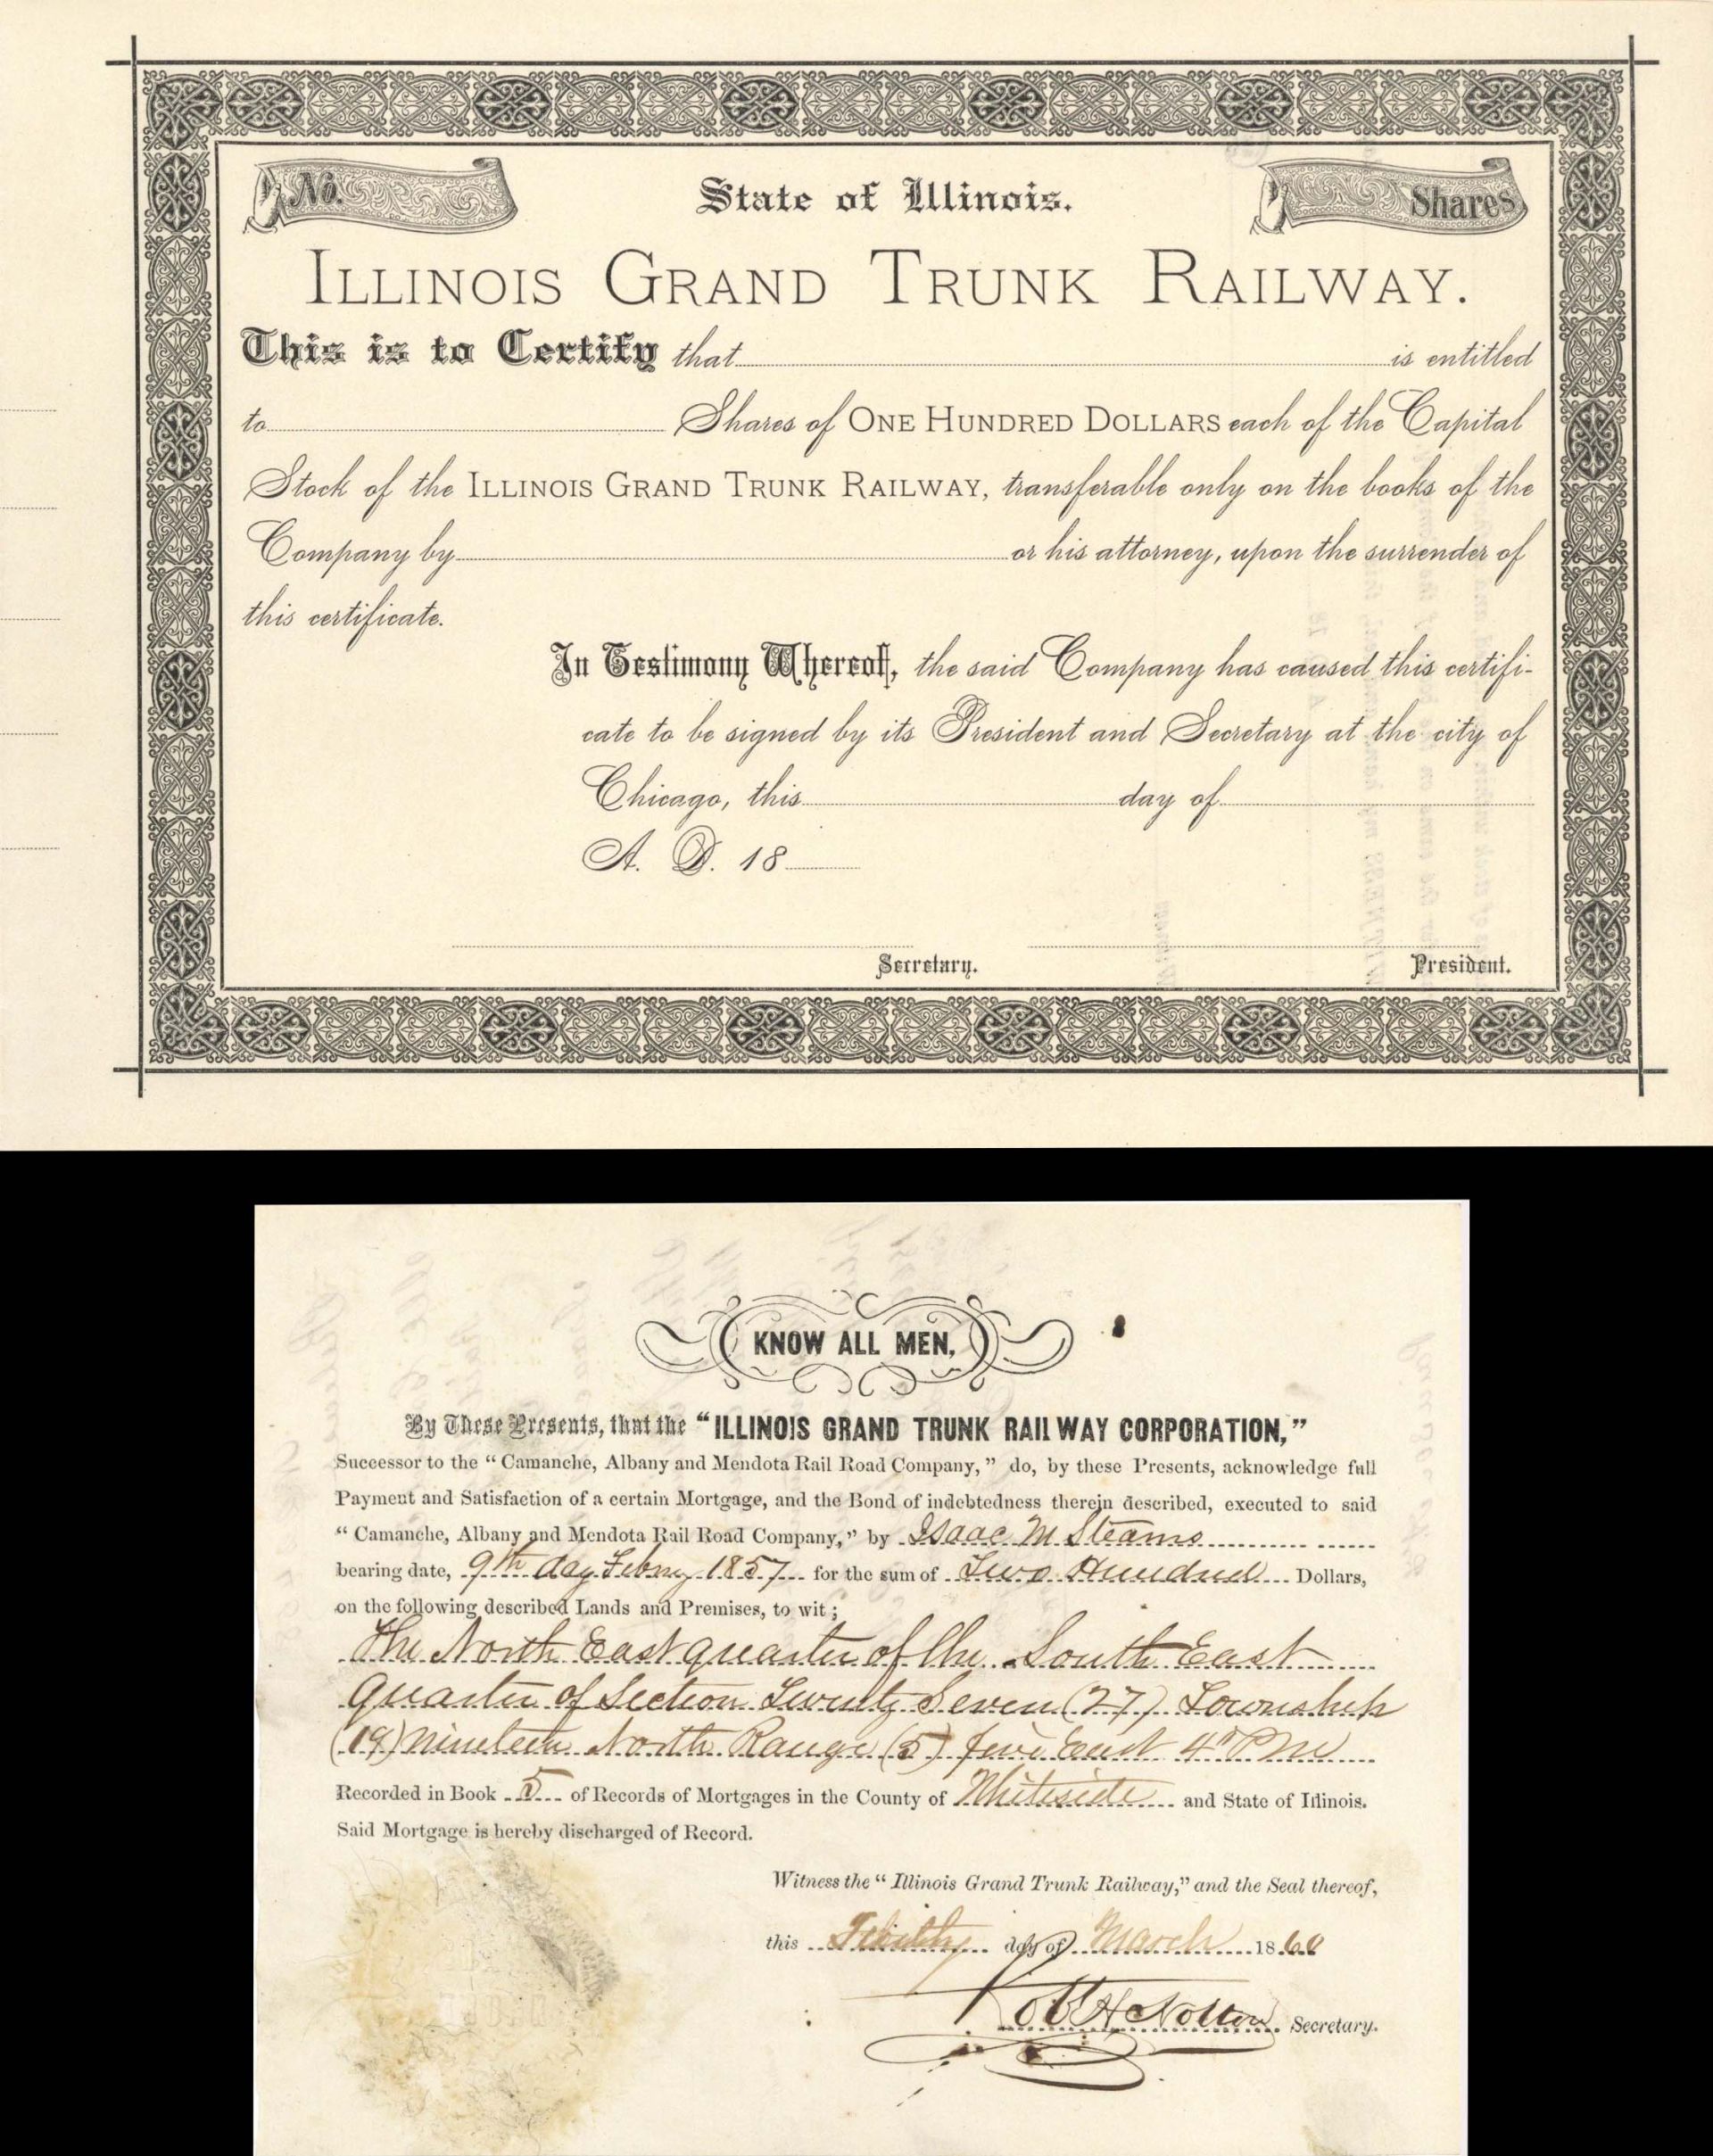 No.
State of Illinois.
Shares
ILLINOIS GRAND TRUNK RAILWAY.
This is to Certify that is entitled
to Shares of ONE HUNDRED DOLLARS each of the Capital
Stock of the ILLINOIS GRAND TRUNK RAILWAY, transferable only on the books of the
Company by or his attorney, upon the surrender of
this certificate.
In Testimony Whereof, the said Company has caused this certifi-
cate to be signed by its President and Secretary at the city of
Chicago, this day of
A. D. 18
Secretary. President.
KNOW ALL MEN,
By These Presents, that the "ILLINOIS GRAND TRUNK RAILWAY CORPORATION,"
Successor to the "Camanche, Albany and Mendota Rail Road Company," do, by these Presents, acknowledge full
Payment and Satisfaction of a certain Mortgage, and the Bond of indebtedness therein described, executed to said
"Camanche, Albany and Mendota Rail Road Company," by Isaac M Stearns
bearing date, 9th day Febry 1857 for the sum of Two Hundred Dollars,
on the following described Lands and Premises, to wit;
The North East quarter of the South East
quarter of Section Twenty Seven (27) Township
(19) Nineteen North Range (5) five East 4th PM
Recorded in Book 5 of Records of Mortgages in the County of Whiteside and State of Illinois.
Said Mortgage is hereby discharged of Record.
Witness the "Illinois Grand Trunk Railway," and the Seal thereof,
this day of March 1860
Secretary.